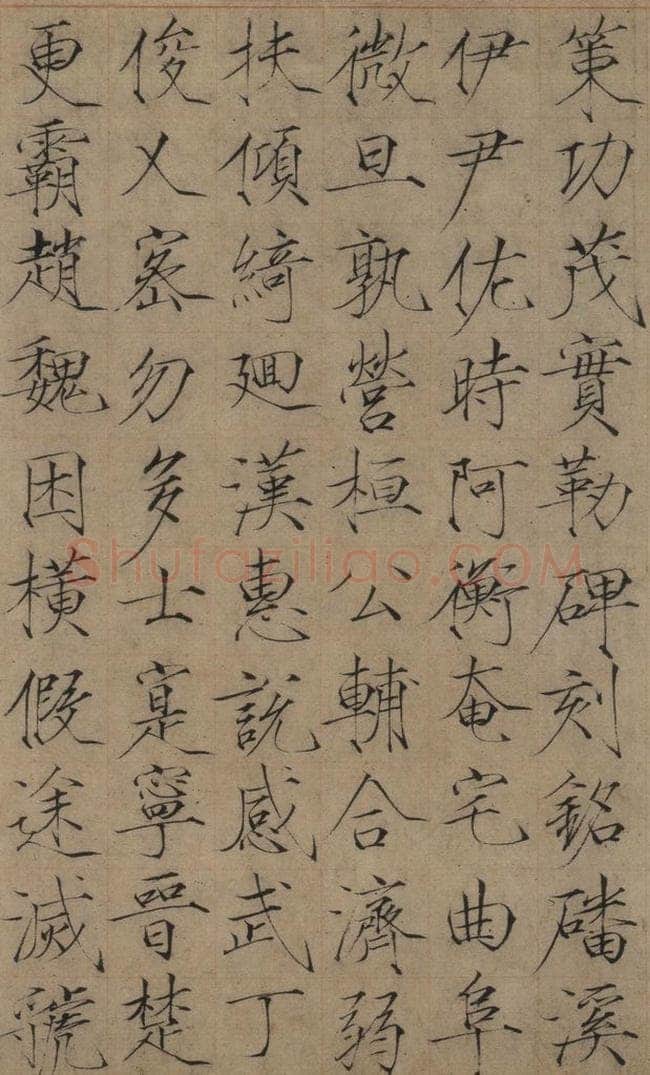 策功茂實勒碑刻銘磻溪
伊尹佐時阿衡奄宅曲阜
微旦孰營桓公輔合濟弱
扶傾綺迴漢惠說感武丁
俊乂密勿多士寔寧晉楚
更霸趙魏困橫假途滅虢
Shufaziliao.COM